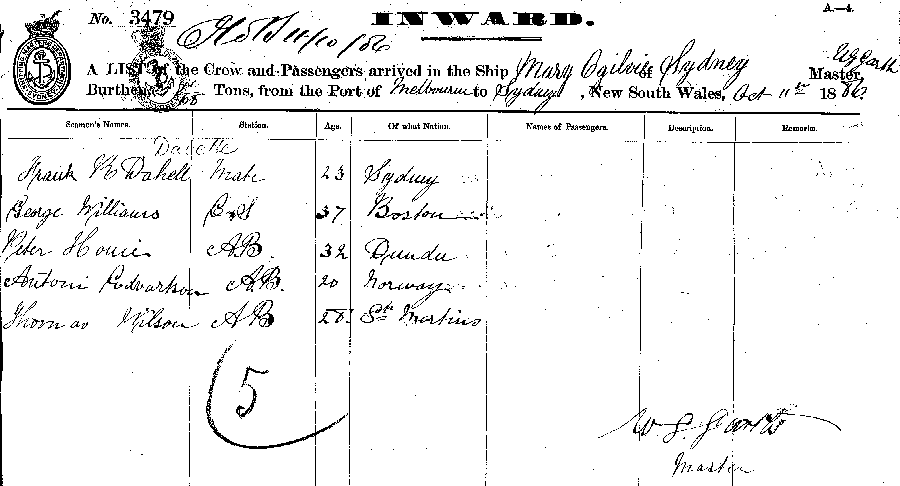 No. 3479 INWARD. A.—4.
A LIST of the Crew and Passengers arrived in the Ship Mary Ogilvie of Sydney Master,
Burthen Tons, from the Port of Melbourne to Sydney, New South Wales, Oct 11th 1886
Seamen's Names. Station. Age. Of what Nation. Names of Passengers. Description. Remarks.
Frank Mate 23 Sydney
George Williams C&S 37 Boston
Peter Howie AB 32 Dundee
Antoni AB. 20 Norway
Thomas Wilson AB 28 St Martins
5
Master